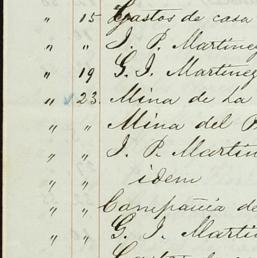 " 15 Gastos de casa
" " J. P. Martinez
" 19 G. J. Martinez
" 23. Mina de la
" " Mina del
" " J. P. Martin
" " idem
" " Compañia de
" " G. J. Martin